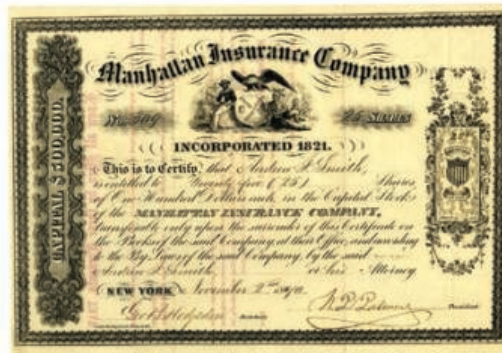 Manhattan Insurance Company
No. 509
25 SHARES
INCORPORATED 1821.
This is to Certify, that Andrew F. Smith,
is entitled to Twenty five (25) Shares
of One Hundred Dollars each, in the Capital Stock
of the MANHATTAN INSURANCE COMPANY,
Transferable only upon the surrender of this Certificate on
the Books of the said Company, at their Office, and according
to the By Laws of the said Company, by the said
Andrew F. Smith, or his Attorney
NEW YORK November 2nd
President
CAPITAL $500,000.